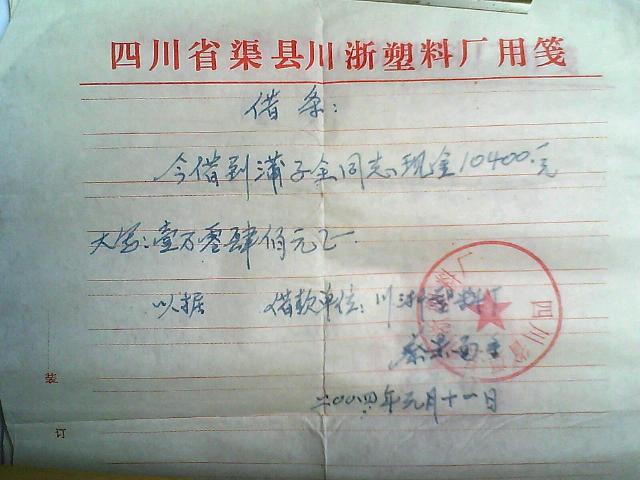 四川省渠县川浙塑料厂用笺
借条:
今借到蒲子全同志现金10400.元
大写:壹万零肆佰元正.
以据 借款单位:川浙塑料厂
二00四年元月十一日
四川省
装
订